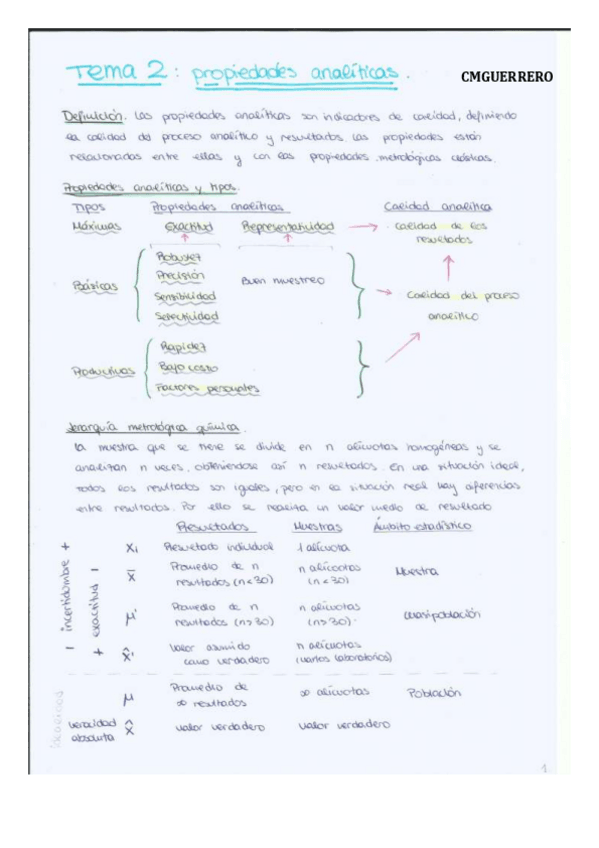 Tema 2: propiedades analíticas.
CMGUERRERO
Definición. Las propiedades analíticas son indicadores de calidad, definiendo
la calidad del proceso analítico y resultados. Las propiedades están
relacionadas entre ellas y con las propiedades metrológicas clásicas.
Propiedades analíticas y tipos.
TIPOS Propiedades analíticas Calidad analítica
Máximas Exactitud Representatividad → calidad de los
resultados
Básicas
Robustez
Precisión
Sensibilidad
Selectividad
Buen muestreo
Calidad del proceso
analítico
Productivas
Rapidez
Bajo costo
Factores personales
Jerarquía metrológica química.
La muestra que se tiene se divide en n alícuotas homogéneas y se
analizan n veces, obteniéndose así n resultados. En una situación ideal,
todos los resultados son iguales, pero en la situación real hay diferencias
entre resultados. Por ello se realiza un valor medio de resultado
Resultados Muestras Ámbito estadístico
Xi Resultado individual 1 alícuota
X̄ Promedio de n n alícuotas Muestra
resultados (n<30) (n<30)
μ' Promedio de n n alícuotas
resultados (n>30) (n>30)
X̂' Valor asumido n alícuotas
como verdadero (varios laboratorios)
- incertidumbre +
+ exactitud -
μ Promedio de ∞ alícuotas Población
∞ resultados
veracidad X̂ valor verdadero valor verdadero
absoluta
1